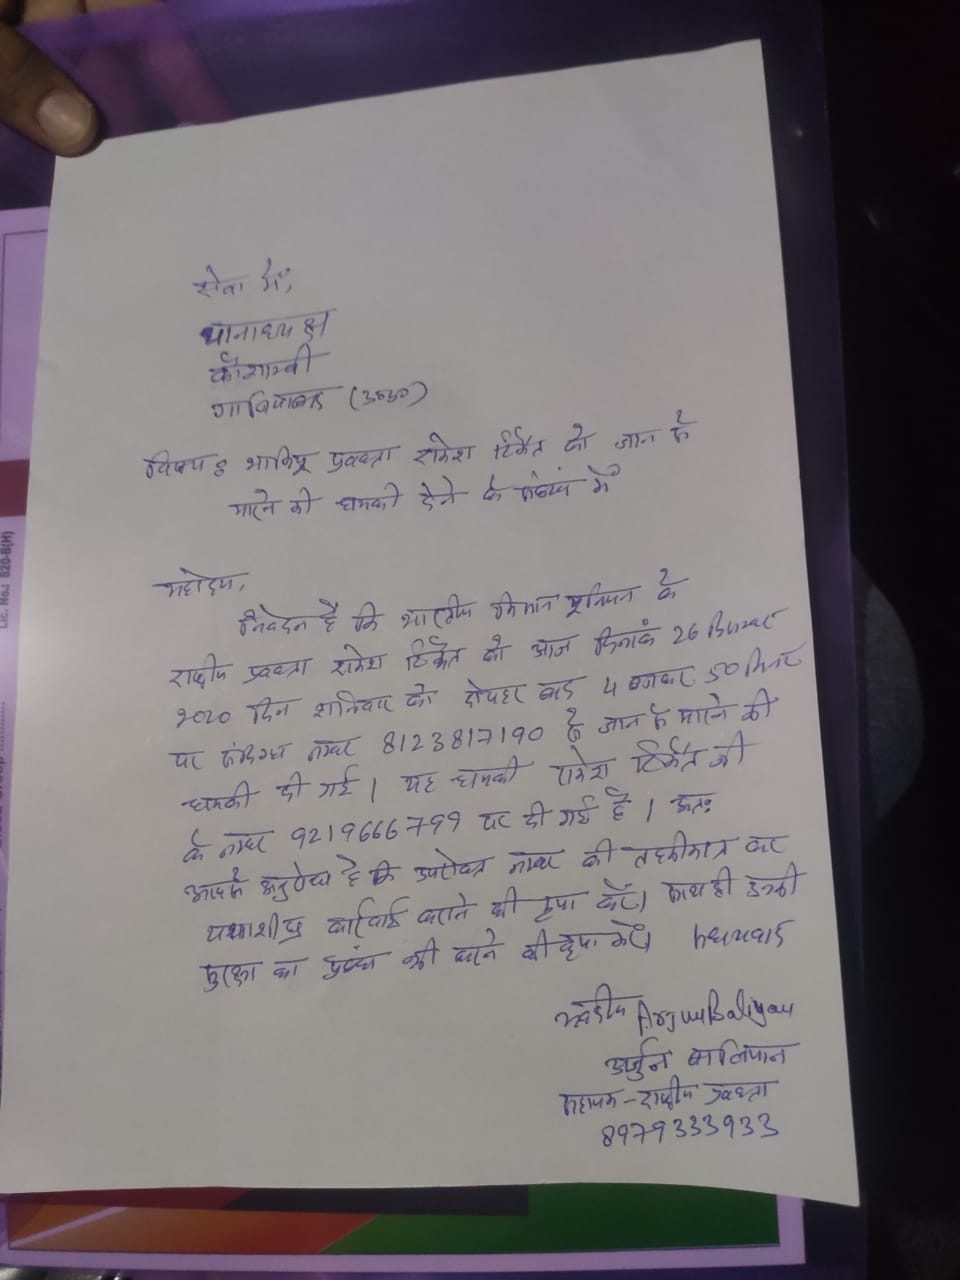 सेवा में,
थानाध्यक्ष
कौशाम्बी
गाजियाबाद (उ०प्र०)
विषय: भाकियू प्रवक्ता राकेश टिकैत को जान से
मारने की धमकी देने के संबंध में
महोदय,
निवेदन है कि भारतीय किसान यूनियन के
राष्ट्रीय प्रवक्ता राकेश टिकैत को आज दिनांक 26 दिसम्बर
2020 दिन शनिवार को दोपहर बाद 4 बजकर 50 मिनट
पर संदिग्ध नम्बर 8123817190 से जान से मारने की
धमकी दी गई। यह धमकी राकेश टिकैत जी
के नम्बर 9219666799 पर दी गई है। अतः
आपसे अनुरोध है कि उपरोक्त नम्बर की तहकीकात कर
यथाशीघ्र कार्रवाई कराने की कृपा करें। साथ ही उनकी
सुरक्षा का प्रबंध भी करने की कृपा करें। धन्यवाद
भवदीय Arjun Baliyan
अर्जुन बालियान
सहायक - राष्ट्रीय प्रवक्ता
8979333933
Lic. No.: 820-B(H)